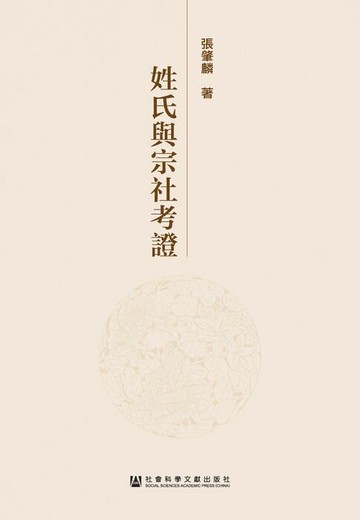 張肇麟 著
姓氏與宗社考證
社會科學文獻出版社
SOCIAL SCIENCES ACADEMIC PRESS (CHINA)